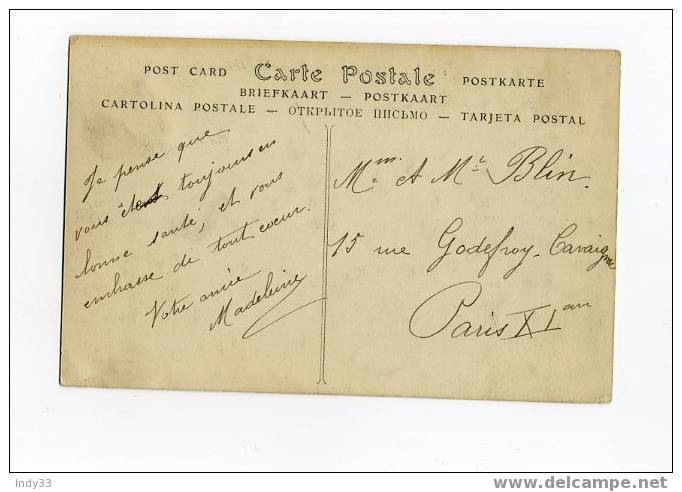 POST CARD Carte Postale POSTKARTE
BRIEFKAART — POSTKAART
CARTOLINA POSTALE — ОТКРЫТОЕ ПИСЬМО — TARJETA POSTAL
Je pense que
vous êtes toujours en
bonne santé, et vous
embrasse de tout coeur.
Votre amie
Madeleine
Mme et Mr Blin.
15 rue Godefroy-Cavaignac
Paris XI
Indy33
www.delcampe.net